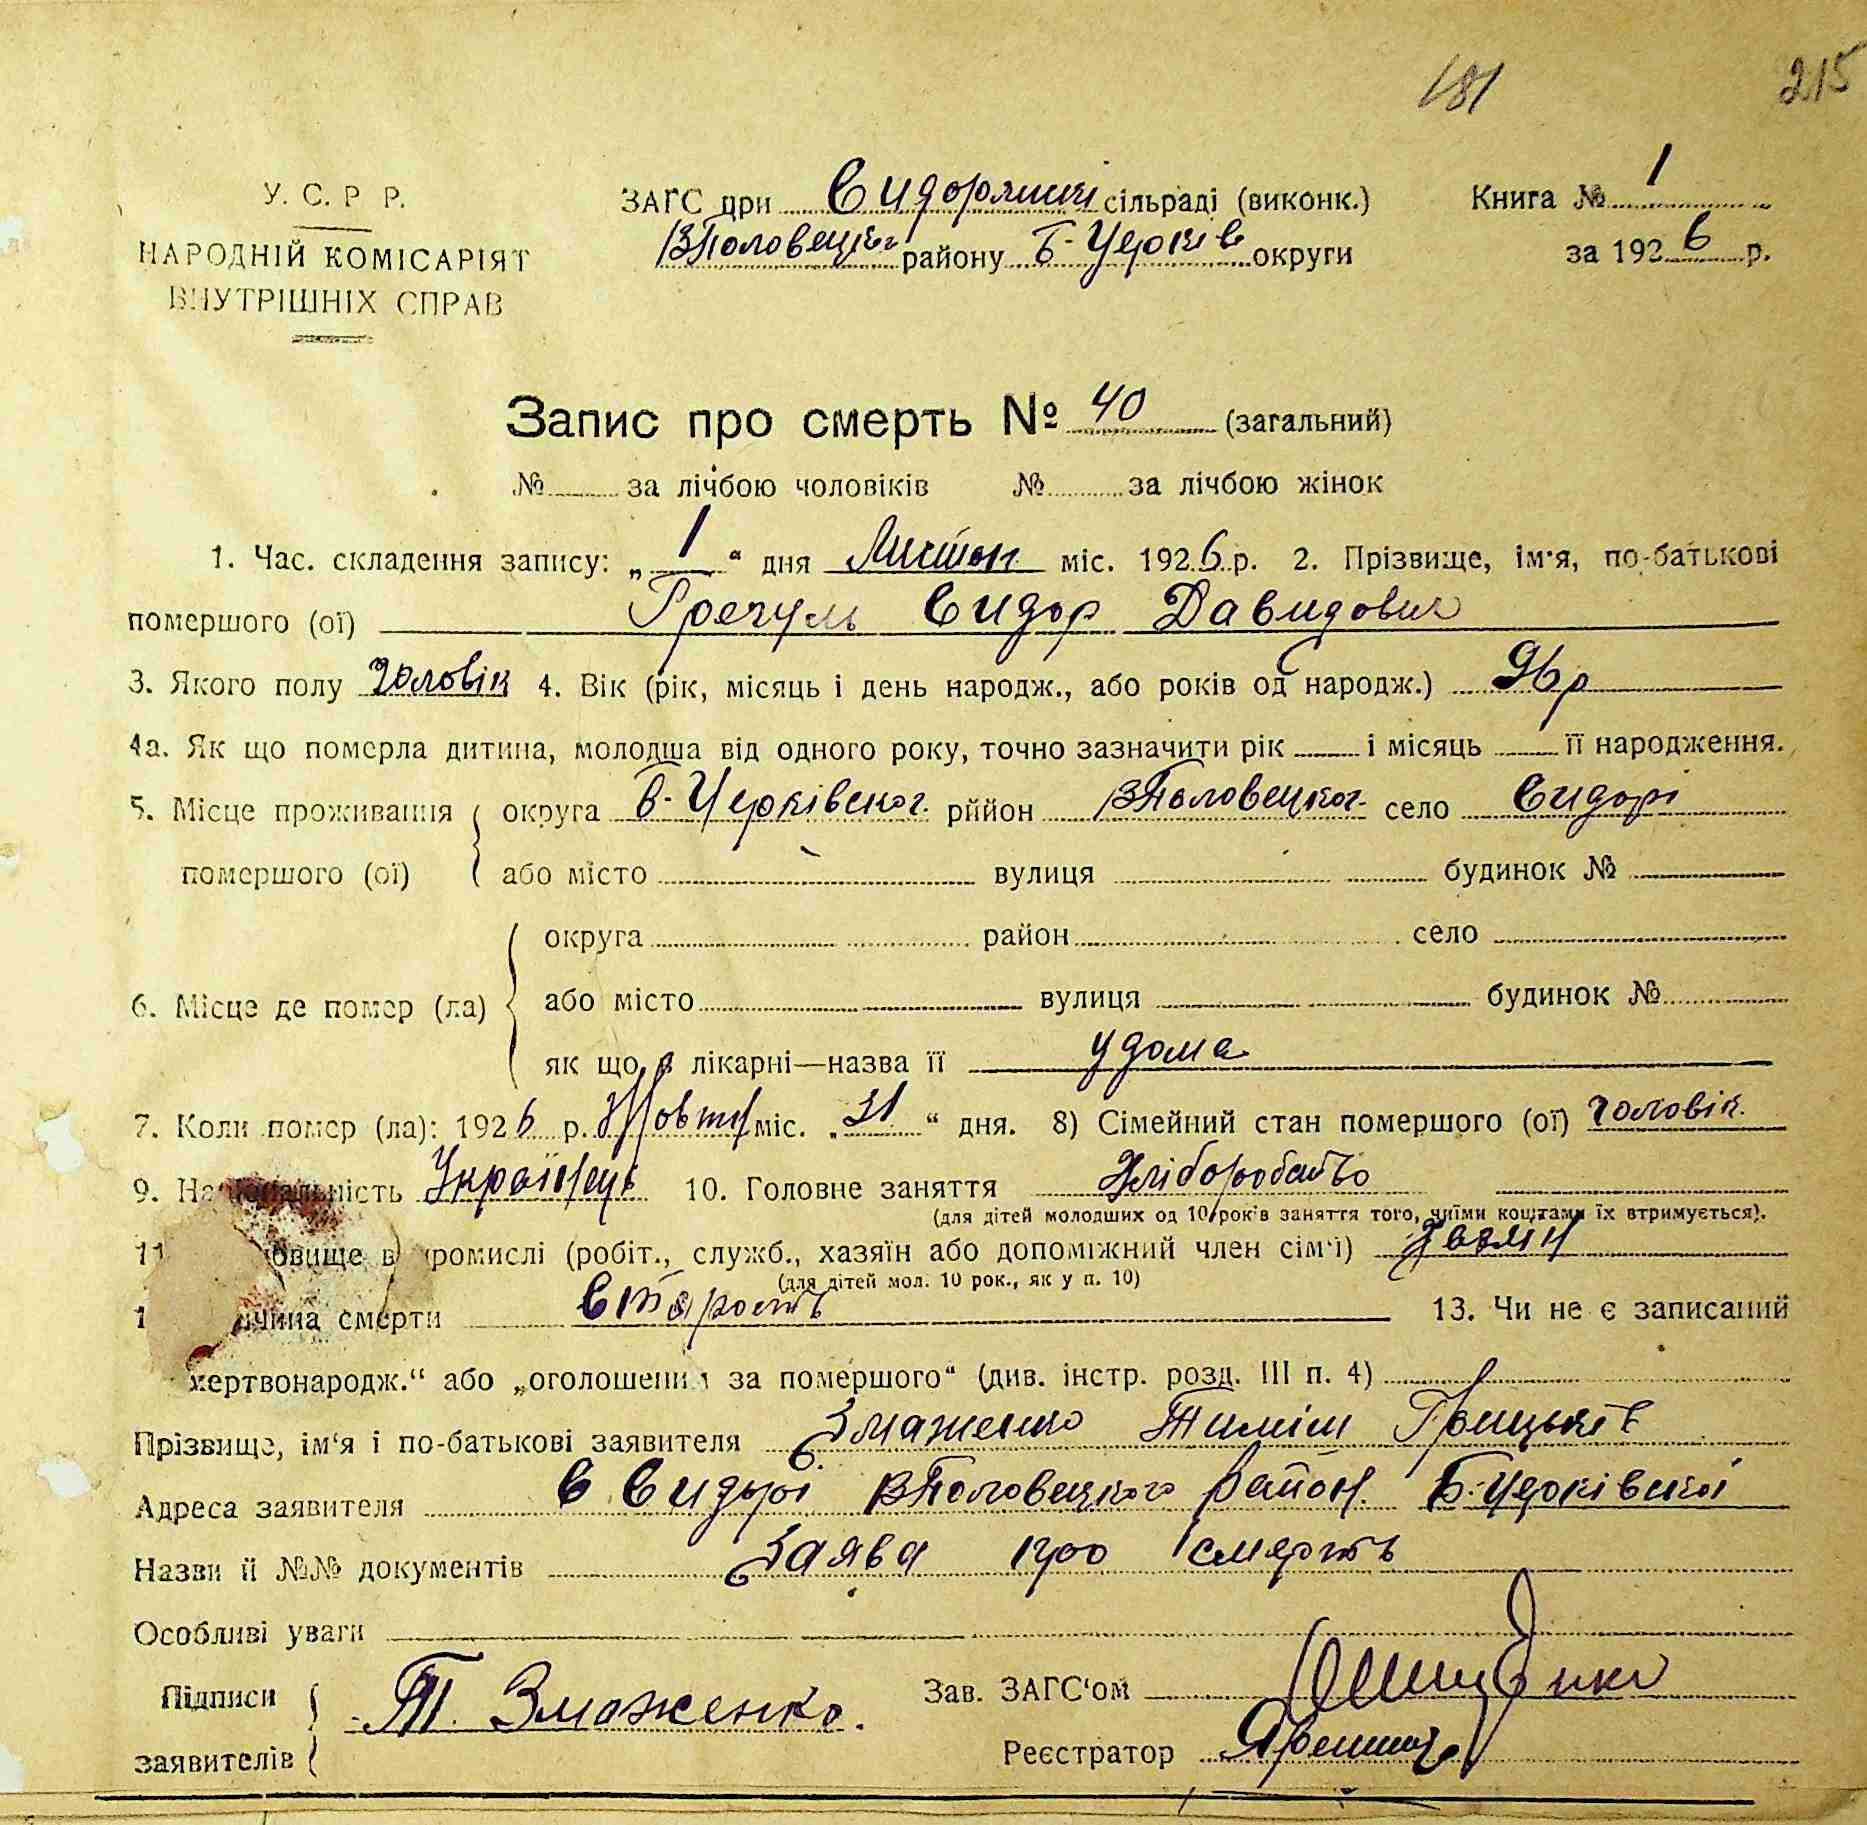 181 215
У. С. Р Р.
НАРОДНІЙ КОМІСАРІЯТ
ВНУТРІШНІХ СПРАВ
ЗАГС при Сидорянскі сільраді (виконк.) Книга № 1
ВПоловецьког району Б-Церків округи за 1926 р.
Запис про смерть № 40 (загальний)
№ за лічбою чоловіків № за лічбою жінок
1. Час. складення запису: „1“ дня Листоп міс. 1926 р. 2. Прізвище, ім'я, по-батькові
помершого (ої) Гречуль Сидор Давидович
3. Якого полу Чоловік 4. Вік (рік, місяць і день народж., або років од народж.) 96 р
4а. Як що померла дитина, молодша від одного року, точно зазначити рік і місяць її народження.
5. Місце проживання округа Б-Церківског. рййон ВПоловецког село Сидорі
помершого (ої) або місто вулиця будинок №
округа район село
6. Місце де помер (ла) або місто вулиця будинок №
як що в лікарні—назва її удома
7. Коли помер (ла): 1926 р. Жовтн міс. „31“ дня. 8) Сімейний стан помершого (ої) чоловік.
9. Національність Українець 10. Головне заняття Хліборобство
(для дітей молодших од 10 років заняття того, чиїми коштами їх втримується).
11 овище в промислі (робіт., служб., хазяїн або допоміжний член сім'ї) Хазяїн
(для дітей мол. 10 рок., як у п. 10)
1 ичина смерти Старость 13. Чи не є записаний
мертвонародж.“ або „оголошений за помершого“ (див. інстр. розд. III п. 4)
Прізвище, ім'я і по-батькові заявителя Зmаженко Тиміш Грицьків
Адреса заявителя С Сидорі ВПоловецкого район. Б-Церківскої
Назви й №№ документів Заява про смерть
Особливі уваги
Підписи Т. Змаженко. Зав. ЗАГС'ом
заявителів Реєстратор